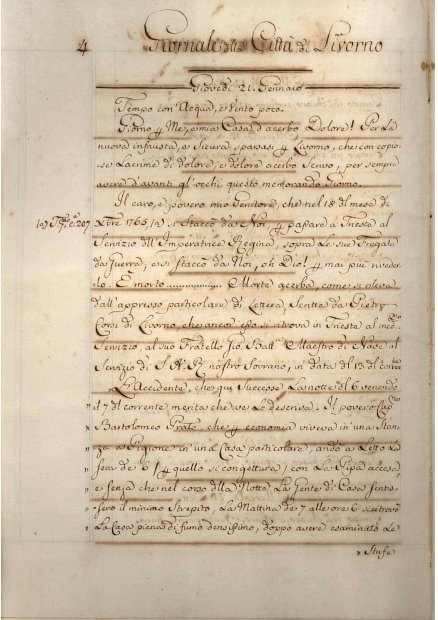 4 Giornale della Città di Livorno
Giovedì 21. Gennaio
Tempo con Acqua, e Vento poco.
Giorno p Me, e mia Casa d'acerbo Dolore! Per la
nuova infausta, e sicura, sparsasi p Livorno, che con copio
se Lacrime di dolore, e dolore acerbo scrivo, per sempre
avere d'avanti gl'occhi questo memorando Giorno.
Il caro, e povero mio Genitore, che nel 18 del mese di
Xbre 1765, si staccò da Noi p passare a Trieste al
Servizio dell'Imperatrice Regina, sopra le sue Fregate
da Guerra, e si staccò da Noi, oh Dio! p mai più riveder
lo. È morto................ Morte acerba, come si rileva
dall'appresso particolare di Lettera, Scritta da Pietro
Corsi di Livorno, che ancor esso si ritrova in Trieste al med.mo
Servizio, al suo Fratello Gio. Batt.a Maestro di Nave al
Servizio di S. A. R. nostro Sovrano, in data del 13 del corr.te
L'Accidente, che qui successe La notte del 6 venendo
il 7 del corrente merita che ve Lo descriva. Il povero Cap.no
" Bartolomeo Prato, che p economia viveva in una Stan
" za a Pigione in una Casa particolare, andò a Letto La
" sera de 6 / p quello si congettura / con La Pipa accesa
" e senza che nel corso della Notte La Gente di Casa sentis
" sero il minimo Strepito, La Mattina de 7, alle ore 6 si trovò
" La Casa piena di fumo densissimo, doppo avere esaminato Le
" Stufe